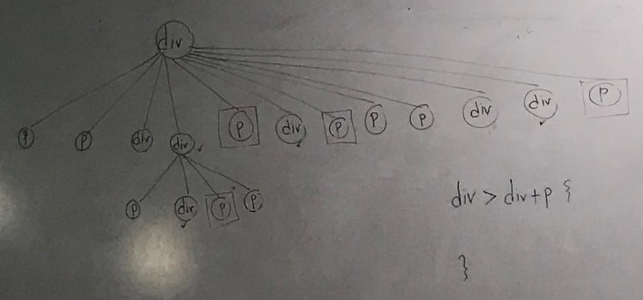 div
p
p
div
div
p
div
p
p
p
div
div
p
p
div
p
p
div > div+p {
}